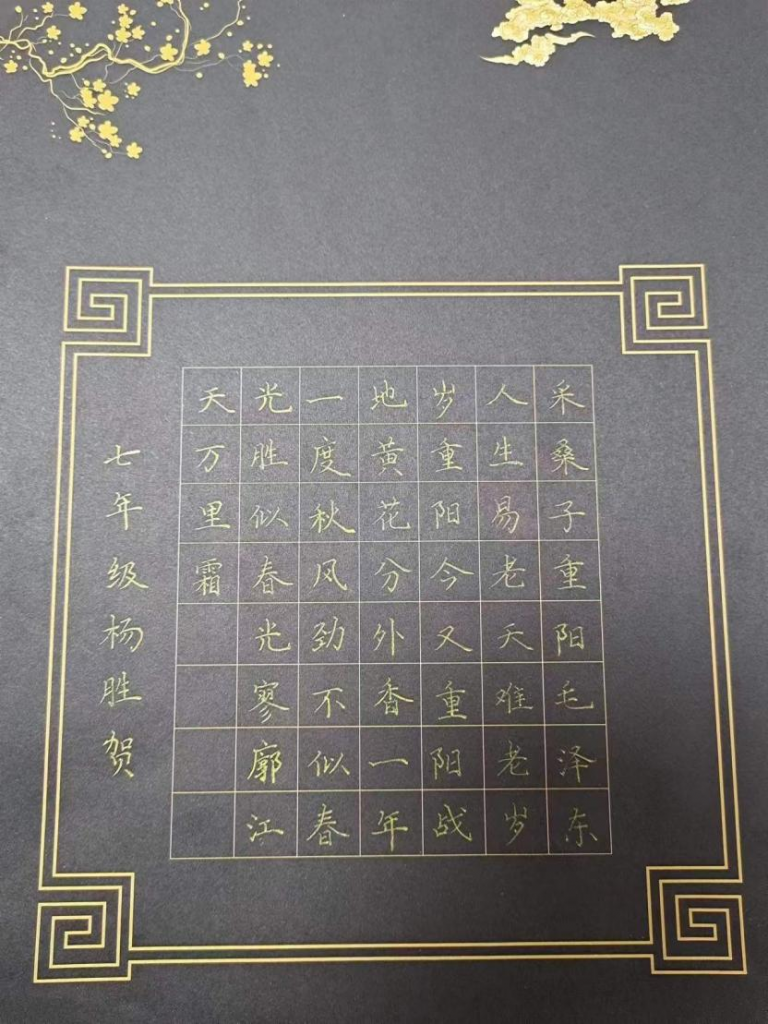 采桑子重阳毛泽东
人生易老天难老岁
岁重阳今又重阳战
地黄花分外香一年
一度秋风劲不似春
光胜似春光寥廓江
天万里霜
七年级杨胜贺